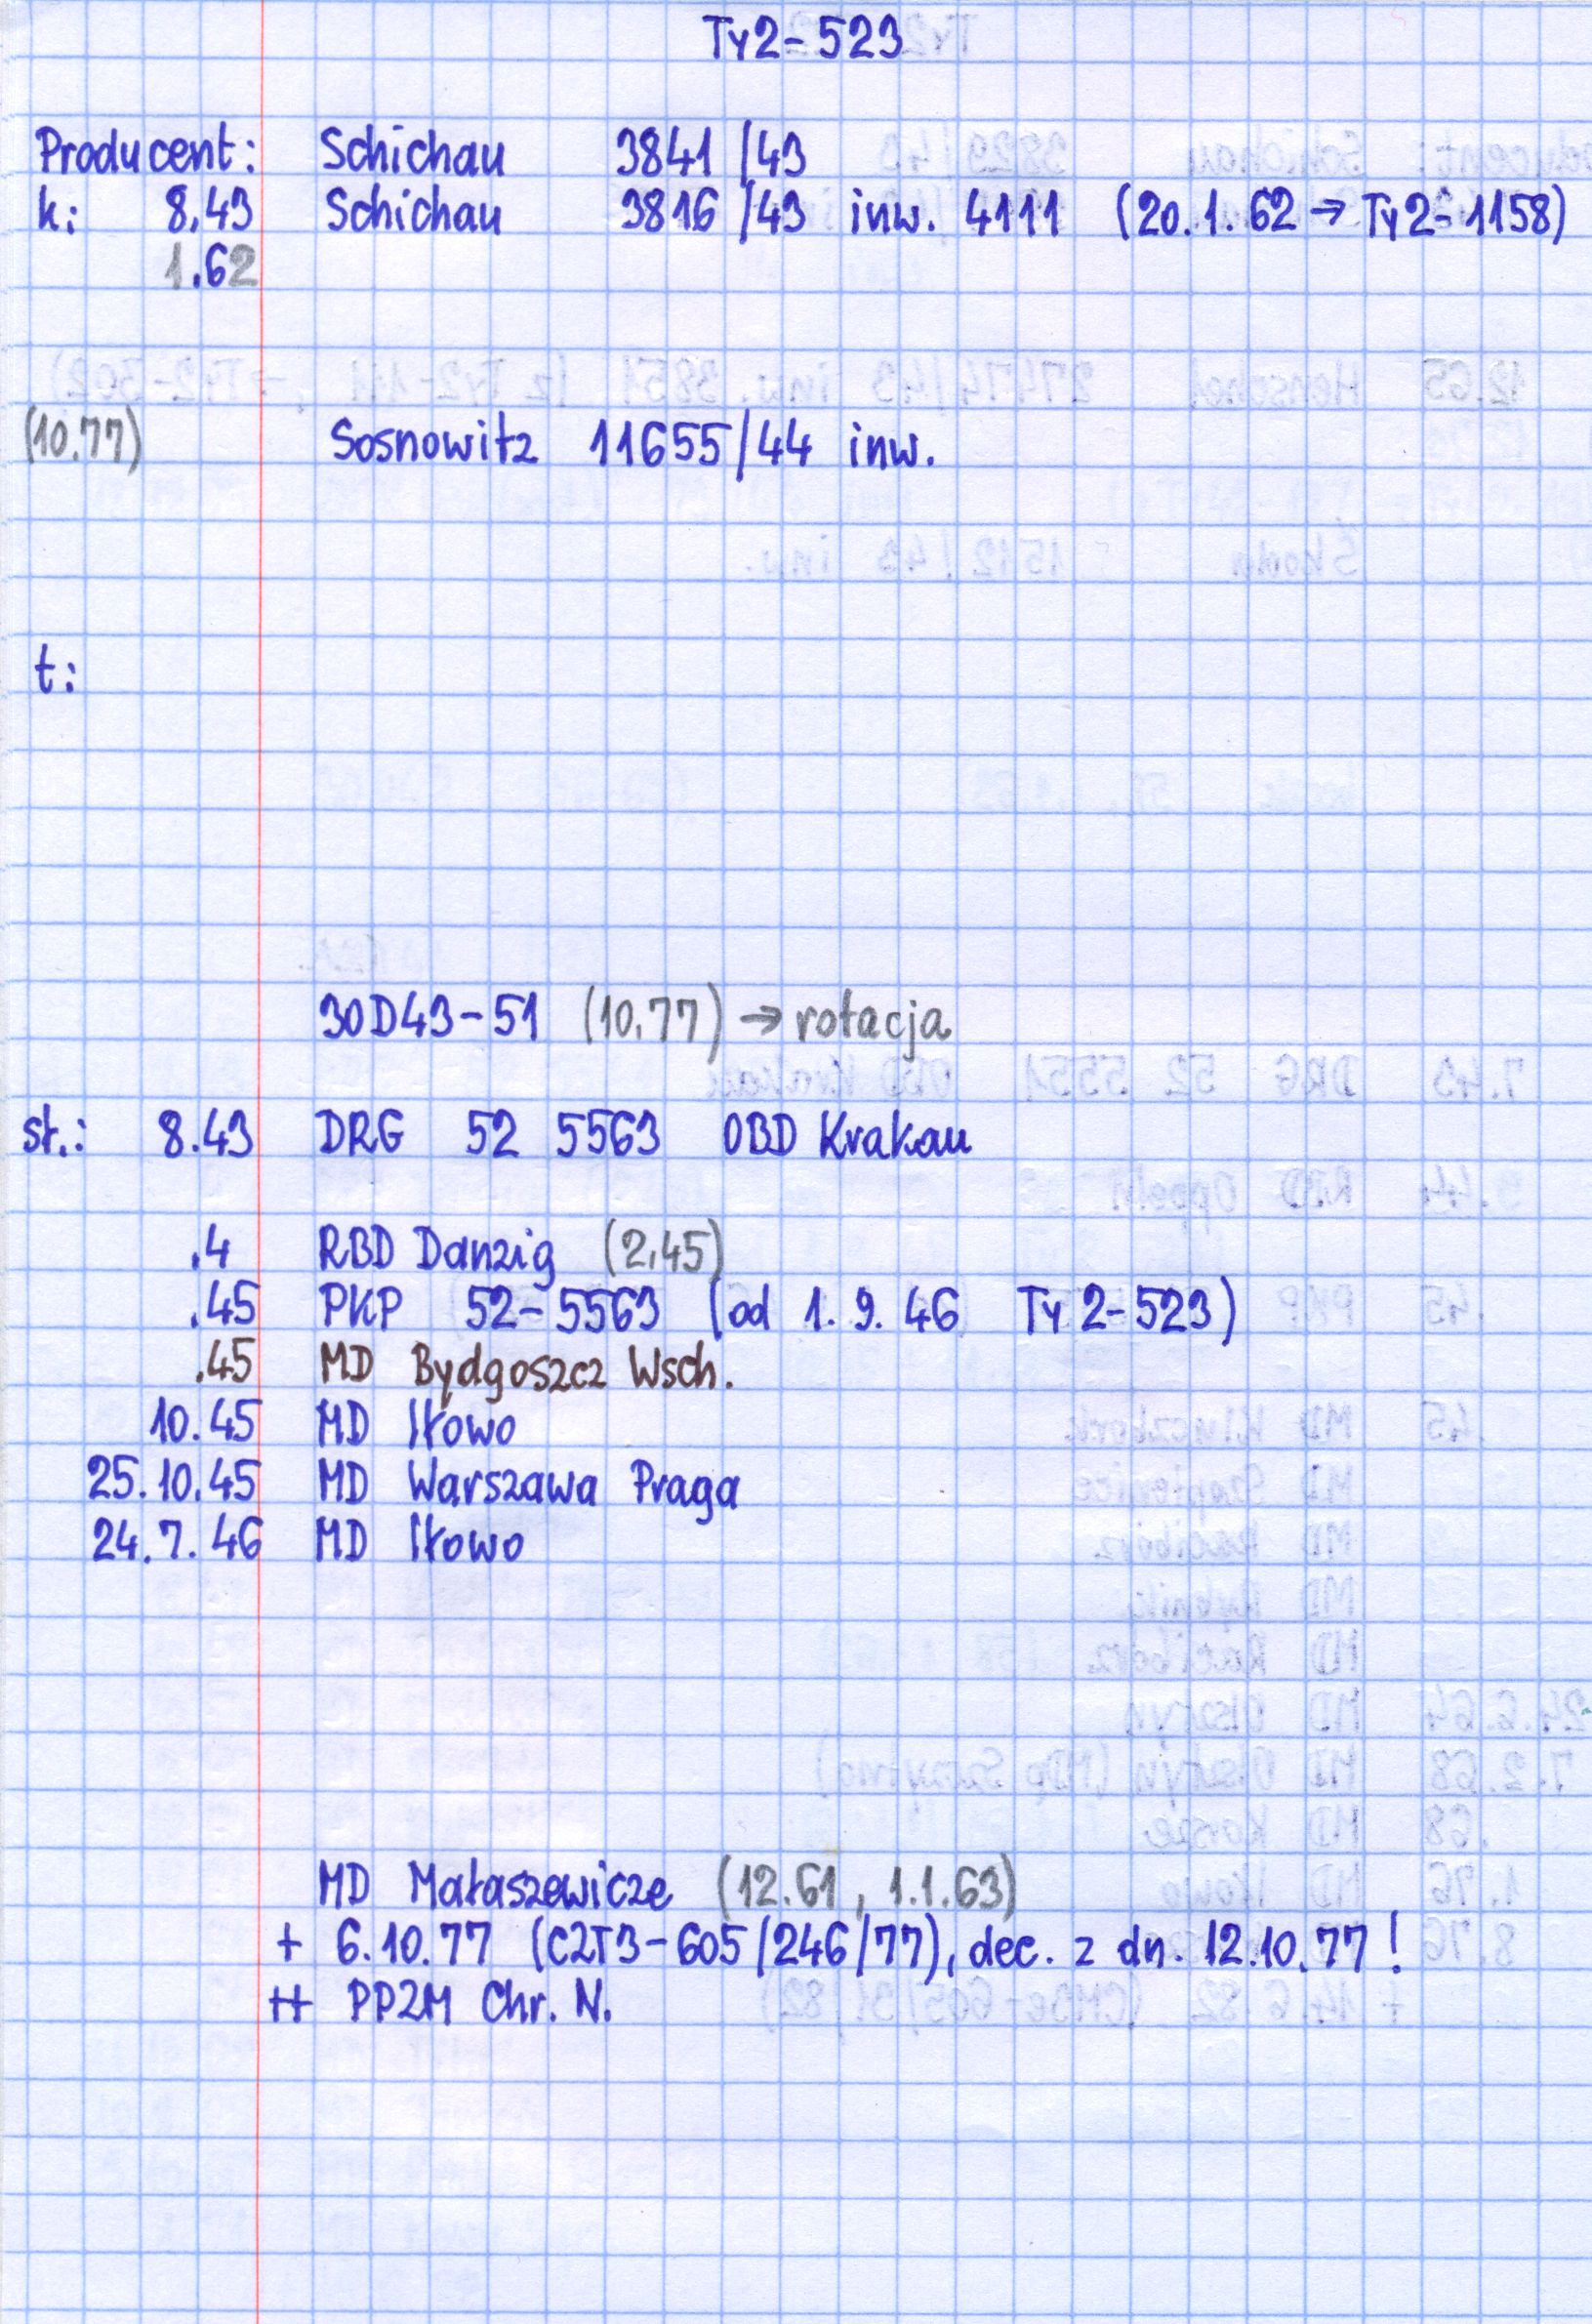 Ty2-523
Producent: Schichau 3841/43
k: 8.43 Schichau 3816/43 inw. 4111 (20.1.62 → Ty2-1158)
1.62
(10.77) Sosnowitz 11655/44 inw.
t:
30D43-51 (10.77) → rotacja
st.: 8.43 DRG 52 5563 OBD Krakau
.4 RBD Danzig (2.45)
.45 PKP 52-5563 (od 1.9.46 Ty2-523)
.45 MD Bydgoszcz Wsch.
10.45 MD Iłowo
25.10.45 MD Warszawa Praga
24.7.46 MD Iłowo
MD Małaszewicze (12.61, 1.1.63)
+ 6.10.77 (CZT3-605/246/77), dec. z dn. 12.10.77!
++ PPZM Chr. N.